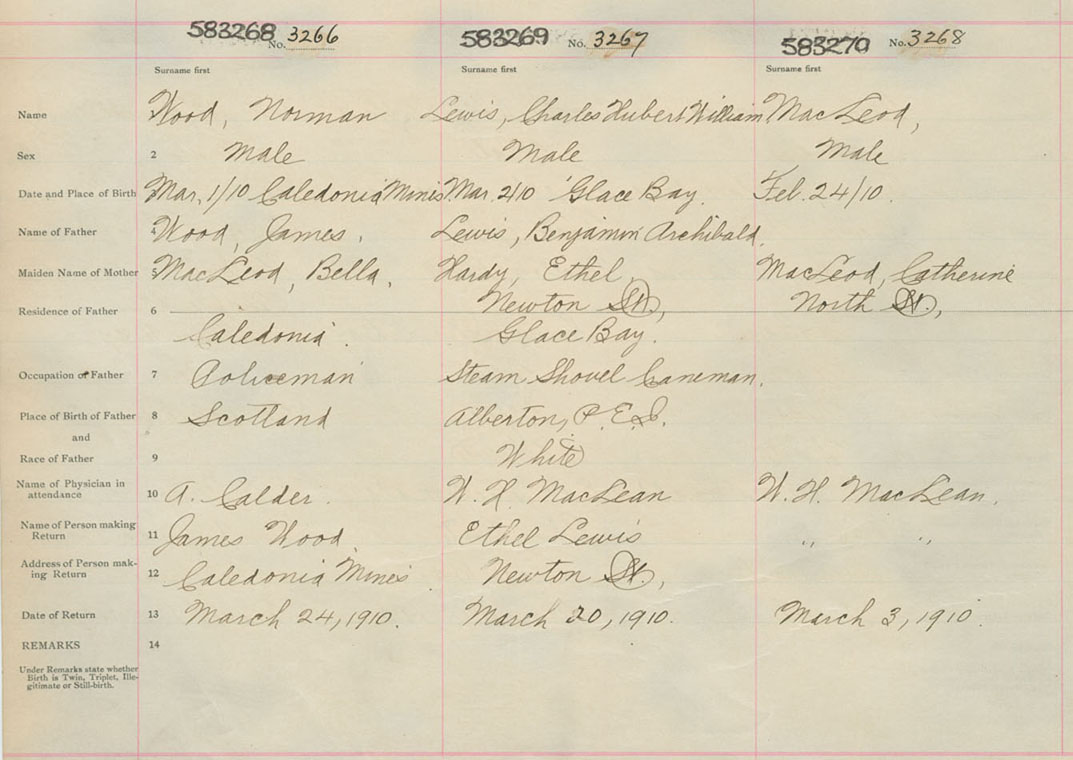 583268 No. 3266 583269 No. 3267 583270 No. 3268
Surname first Surname first Surname first
Name Wood, Norman Lewis, Charles Hubert William MacLeod,
Sex 2 Male Male Male
Date and Place of Birth Mar. 1/10 Caledonia Mines Mar. 2/10 Glace Bay. Feb. 24/10.
Name of Father 4 Wood, James. Lewis, Benjamin Archibald.
Maiden Name of Mother 5 MacLeod, Bella. Hardy, Ethel MacLeod, Catherine
Newton St., North St.,
Residence of Father 6
Caledonia. Glace Bay.
Occupation of Father 7 Policeman Steam Shovel Craneman.
Place of Birth of Father 8 Scotland Alberton, P.E.I.
and
Race of Father 9 White
Name of Physician in
attendance 10 A. Calder. W. H. MacLean W. H. MacLean.
Name of Person making
Return 11 James Wood Ethel Lewis " "
Address of Person mak-
ing Return 12 Caledonia Mines Newton St.,
Date of Return 13 March 24, 1910. March 20, 1910. March 3, 1910.
REMARKS 14
Under Remarks state whether
Birth is Twin, Triplet, Ille-
gitimate or Still-birth.